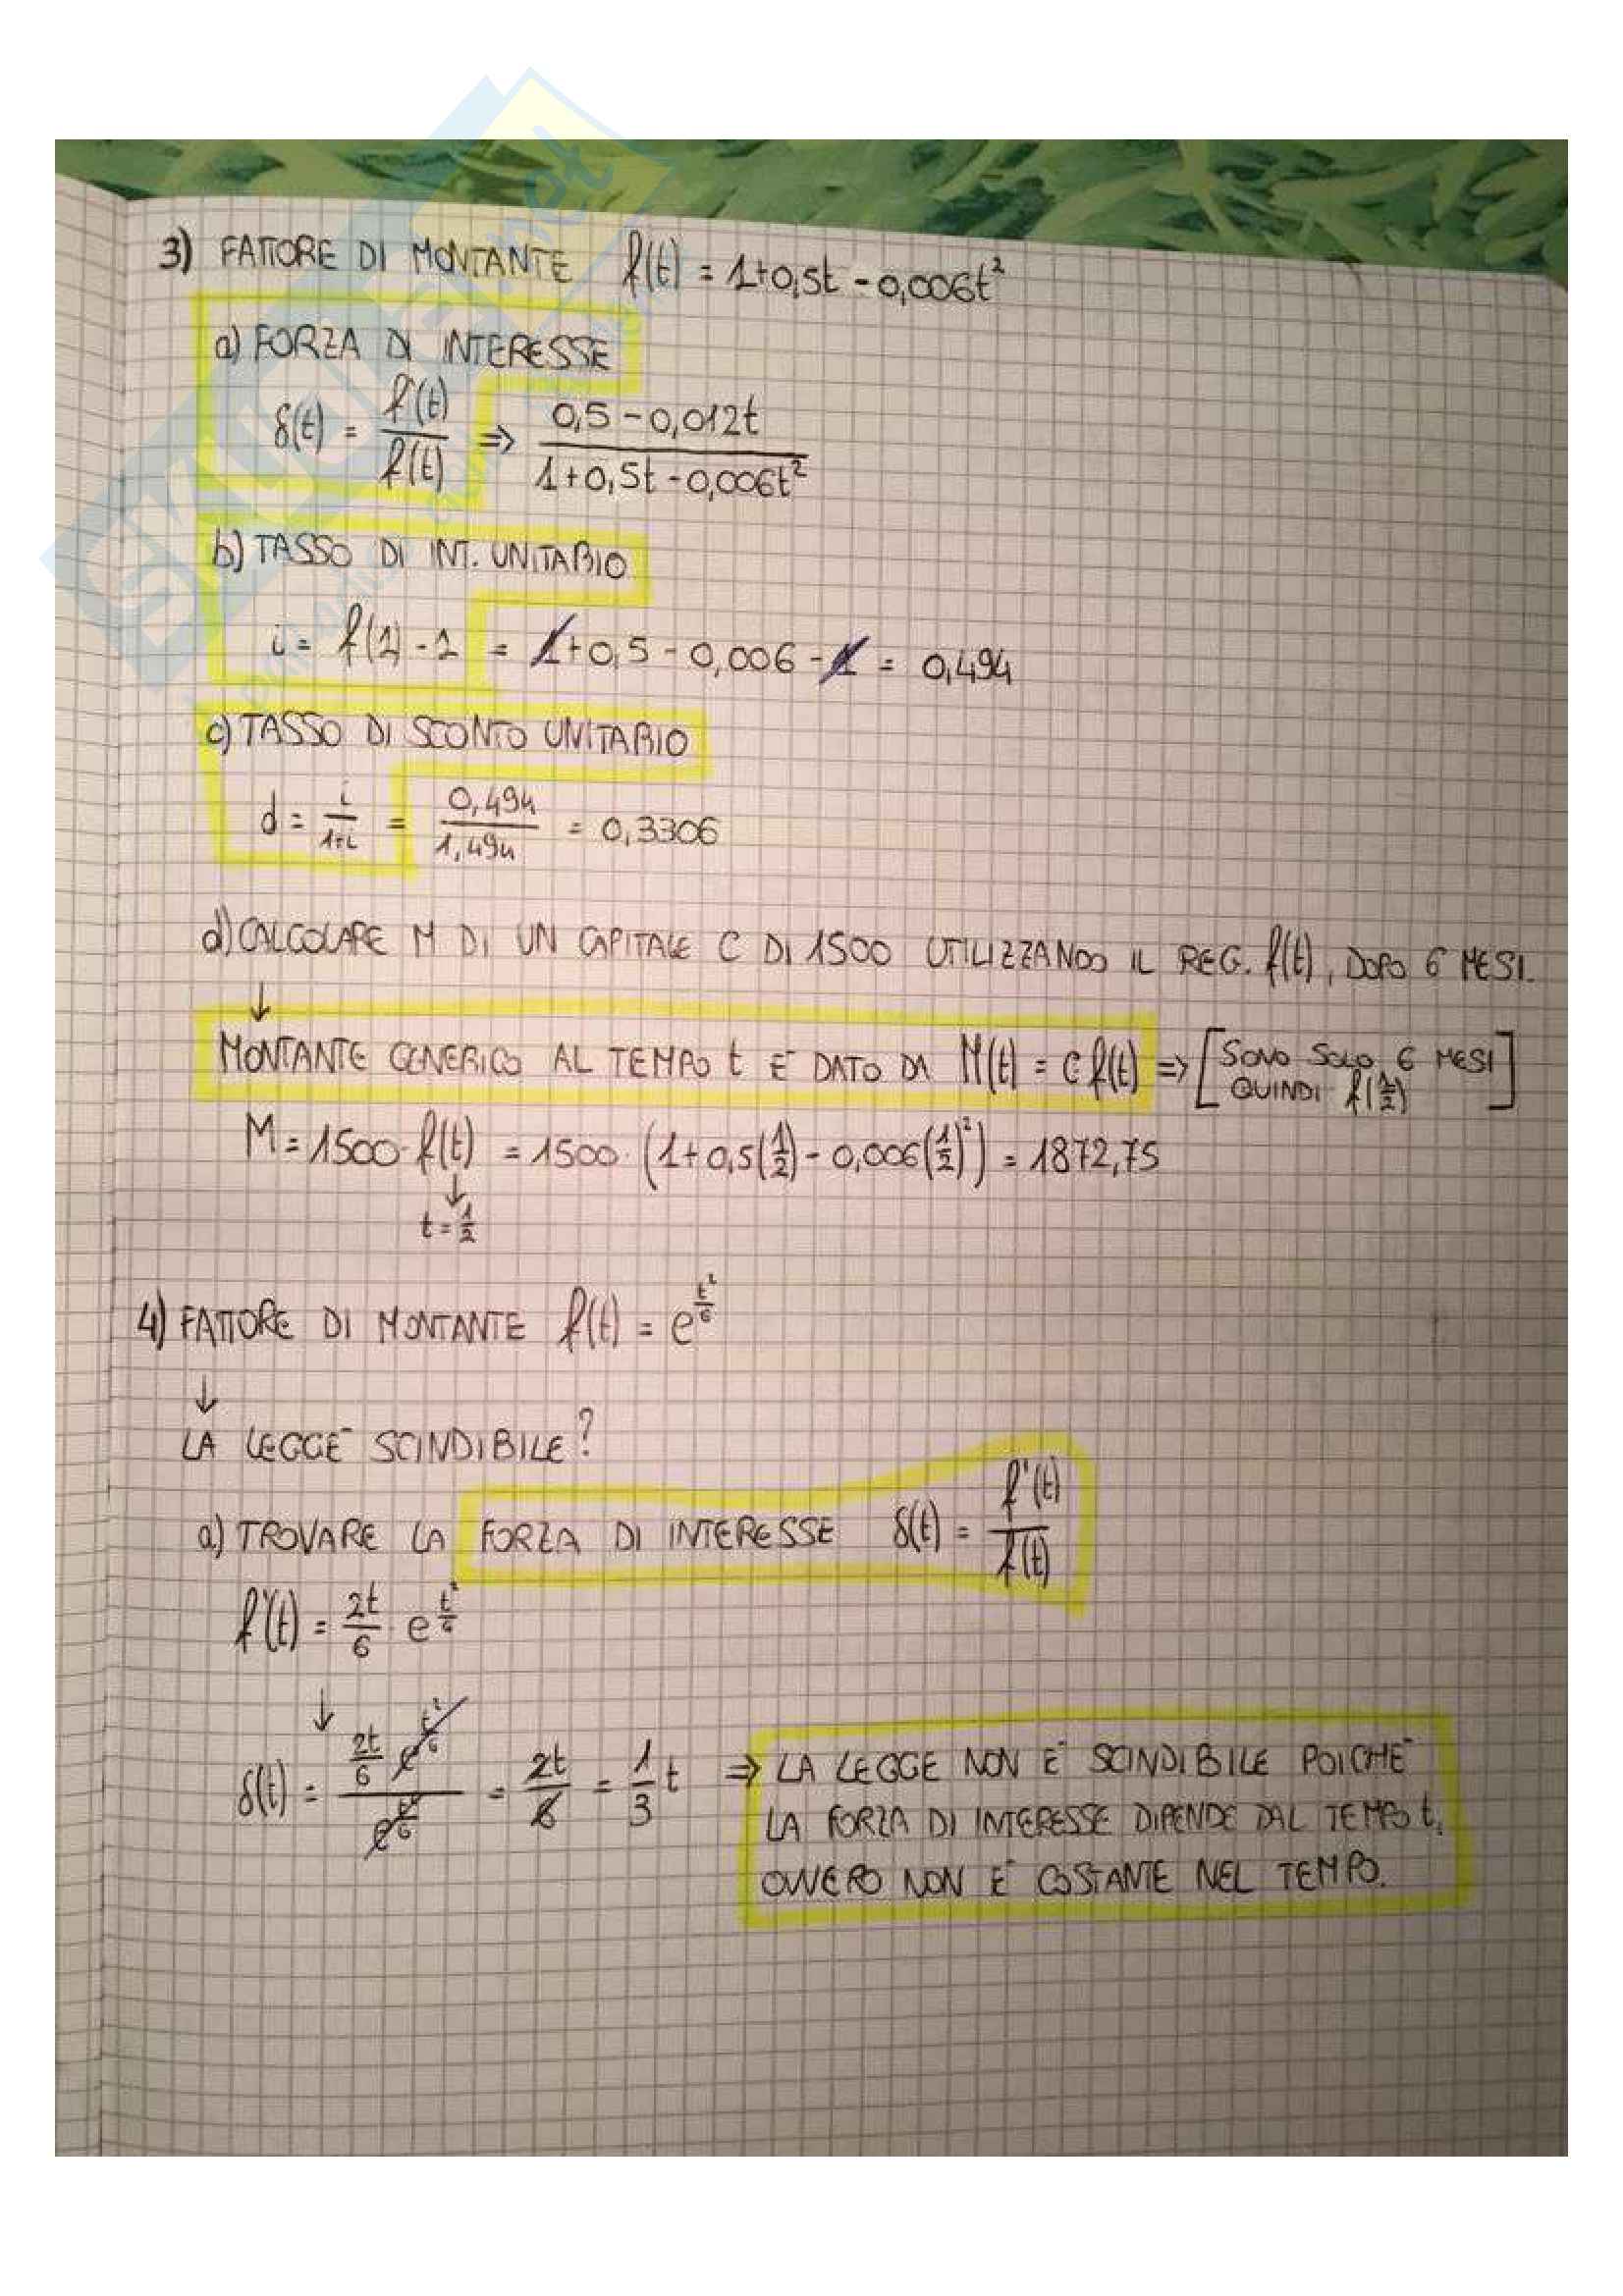 3) FATTORE DI MONTANTE f(t) = 1+0,5t - 0,006t²
a) FORZA DI INTERESSE
δ(t) = f'(t)/f(t) => (0,5 - 0,012t)/(1+0,5t - 0,006t²)
b) TASSO DI INT. UNITARIO
i = f(1) - 1 = 1+0,5 - 0,006 - 1 = 0,494
c) TASSO DI SCONTO UNITARIO
d = i/(1+i) = 0,494/1,494 = 0,3306
d) CALCOLARE M DI UN CAPITALE C DI 1500 UTILIZZANDO IL REG. f(t), DOPO 6 MESI.
↓
MONTANTE GENERICO AL TEMPO t È DATO DA M(t) = C f(t) => [SONO SOLO 6 MESI
QUINDI f(1/2)]
M = 1500 · f(t) = 1500 · (1+0,5(1/2) - 0,006(1/2)²) = 1872,75
↓
t = 1/2
4) FATTORE DI MONTANTE f(t) = e^(t²/6)
↓
LA LEGGE SCINDIBILE?
a) TROVARE LA FORZA DI INTERESSE δ(t) = f'(t)/f(t)
f'(t) = 2t/6 · e^(t²/6)
↓
δ(t) = (2t/6 e^(t²/6))/(e^(t²/6)) = 2t/6 = 1/3 t => LA LEGGE NON È SCINDIBILE POICHÈ
LA FORZA DI INTERESSE DIPENDE DAL TEMPO t,
OVVERO NON È COSTANTE NEL TEMPO.